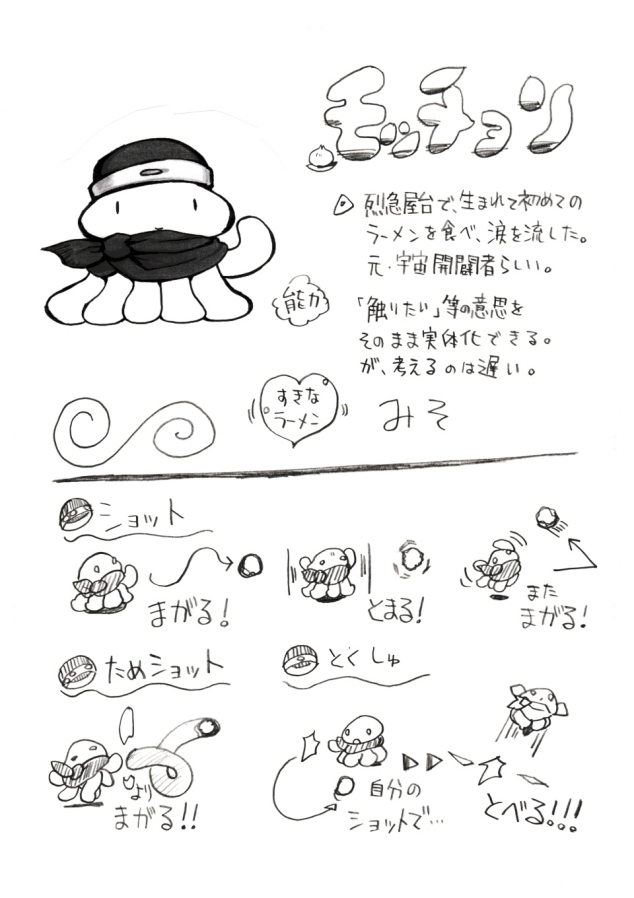 モッチョン
烈急屋台で、生まれて初めての
ラーメンを食べ、涙を流した。
元・宇宙開闢者らしい。
能力
「触りたい」等の意思を
そのまま実体化できる。
が、考えるのは遅い。
すきな
ラーメン
みそ
ショット
まがる!
とまる!
また
まがる!
ためショット
より
まがる!!
とくしゅ
自分の
ショットで…
とべる!!!